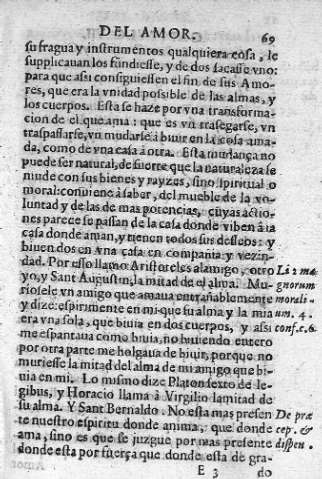 DEL AMOR. 69
su fragua y instrumentos qualquiera cosa, le
supplicauan los fundiesse, y de dos sacasse vno:
para que assi consiguiessen el fin de sus Amo-
res, que era la vnidad possible de las almas, y
los cuerpos. Esta se haze por vna transforma-
cion de el que ama: que es vn trasegarse, vn
traspassarse, vn mudarse à biuir en la cosa ama-
da, como de vna casa à otra. Esta mudança no
puede ser natural, de suerte que la naturaleza se
mude con sus bienes y rayzes, sino spiritual o
moral: conuiene à saber, del mueble de la vo-
luntad y de las de mas potencias, cuyas actio-
nes parece se passan de la casa donde viben à la
casa donde aman, y tienen todos sus desseos: y
biuen dos en vna casa en compañia y vezin-
dad. Por esso llamo Aristoteles al amigo, otro Li 2 ma
yo, y Sant Augustin, la mitad de el alma. Mu- gnorum
riosele vn amigo que amaua entrañablemente morali-
y dize: espirimente en mi que su alma y la mia um. 4.
era vna sola, que biuia en dos cuerpos, y assi conf. c. 6.
me espantaua como biuia, no biuiendo entero
por otra parte me holgaua de biuir, porque no
muriesse la mitad del alma de mi amigo que bi-
uia en mi. Lo mismo dize Platon sexto de le-
gibus, y Horacio llama à Virgilio la mitad de
su alma. Y Sant Bernaldo. No esta mas presen De præ
te nuestro espiritu donde anima, que donde cep. &
ama, sino es que se juzgue por mas presente dispen.
donde esta por fuerça que donde esta de gra-
E 3 do